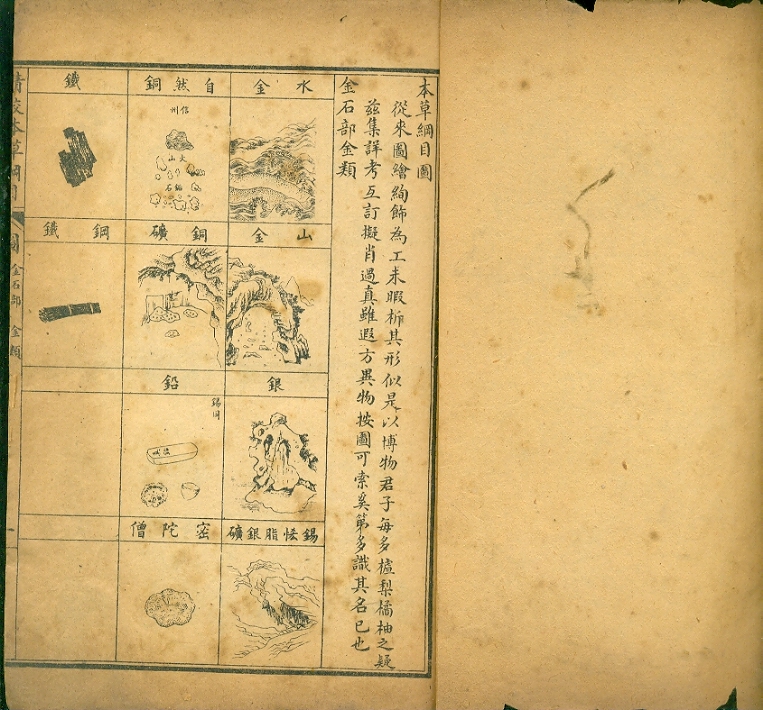 本草綱目圖
從來圖繪絢飾為工未暇析其形似是以博物君子每多樝梨橘柚之疑
茲集詳考互訂擬肖逼真雖遐方異物按圖可索奚第多識其名已也
金石部金類
水金
山金
銀
錫恡脂銀礦
自然銅
信州
火山
銅礦
鉛
錫同
密陀僧
鐵
鋼鐵
本草綱目
圖
金石部
金類